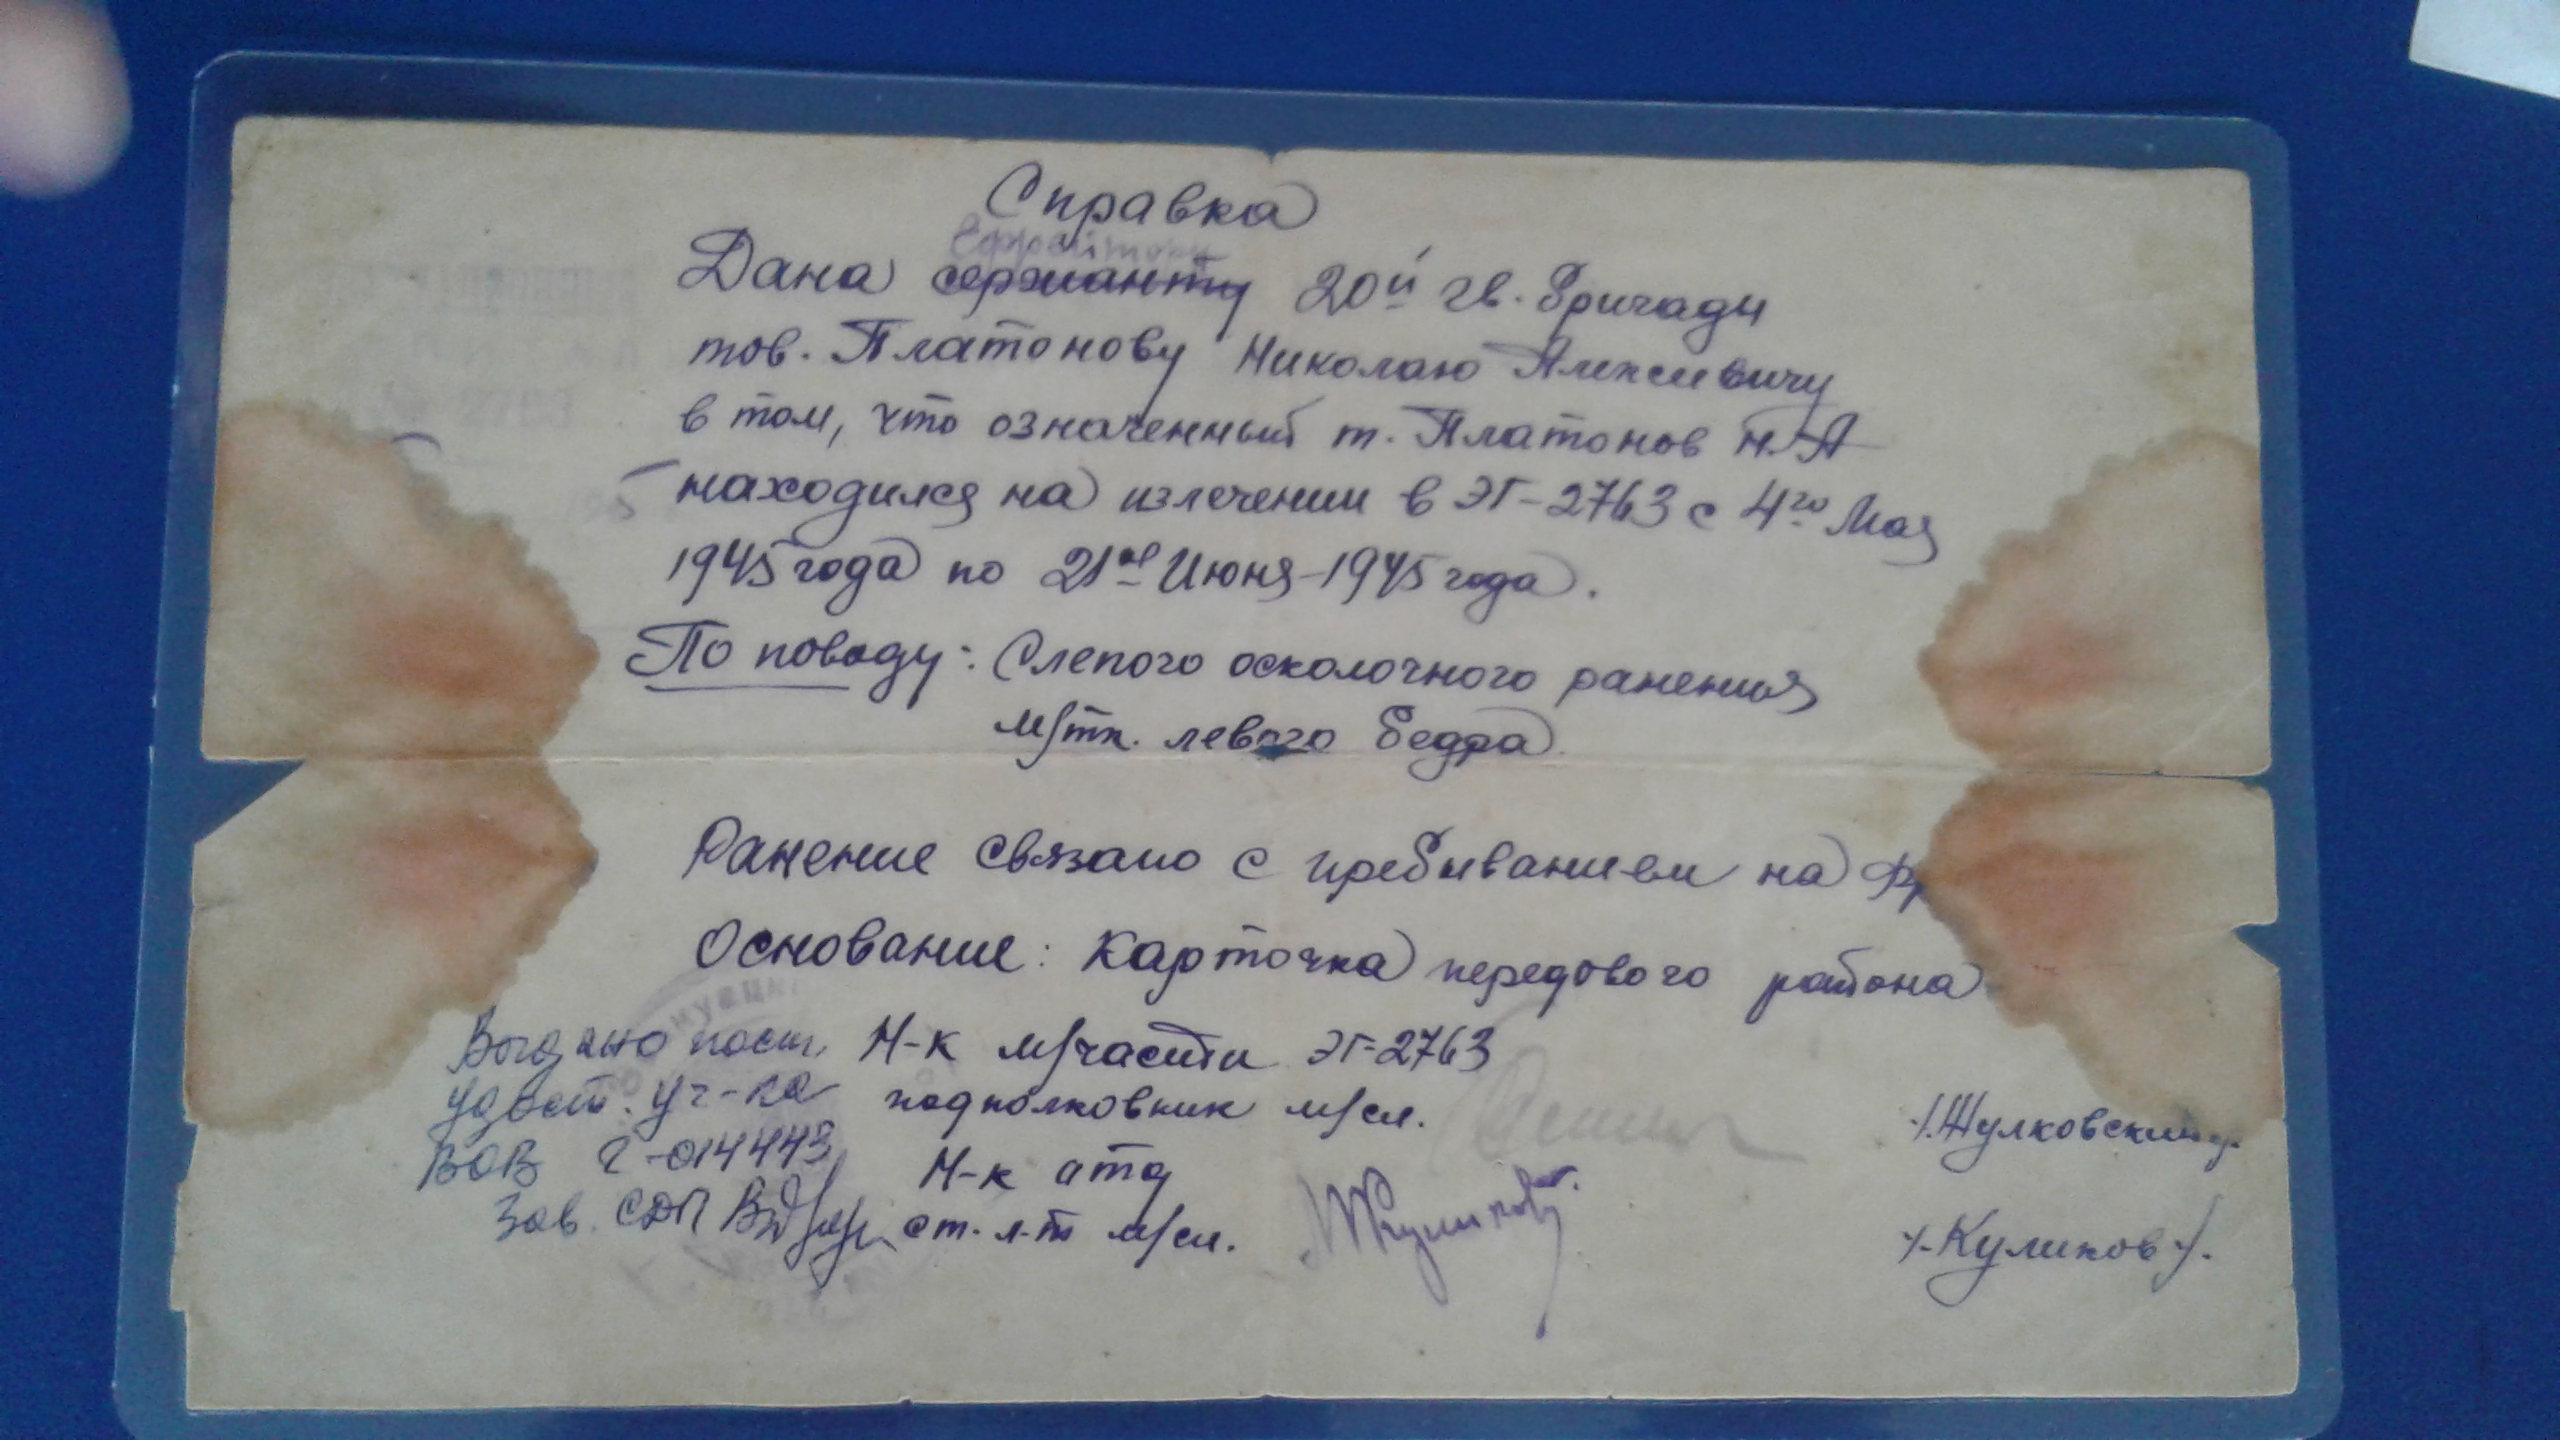 Справка
Ефрейтору
Дана сержанту 20й гв. бригады
тов. Платонову Николаю Алексеевичу
в том, что означенный т. Платонов Н.А
находился на излечении в ЭГ-2763 с 4го Мая
1945 года по 21ое Июня-1945 года.
По поводу: Слепого осколочного ранения
м/тк. левого бедра
Ранение связано с пребыванием на фр
Основание: Карточка передового района
Н-к м/части ЭГ-2763
подполковник м/сл.
/.Жулковский
Н-к отд
ст. л-т м/сл.
/.Куликов/.
Выдано
удост. уч-ка
ВОВ Г-014443
Зав. СДП
2763